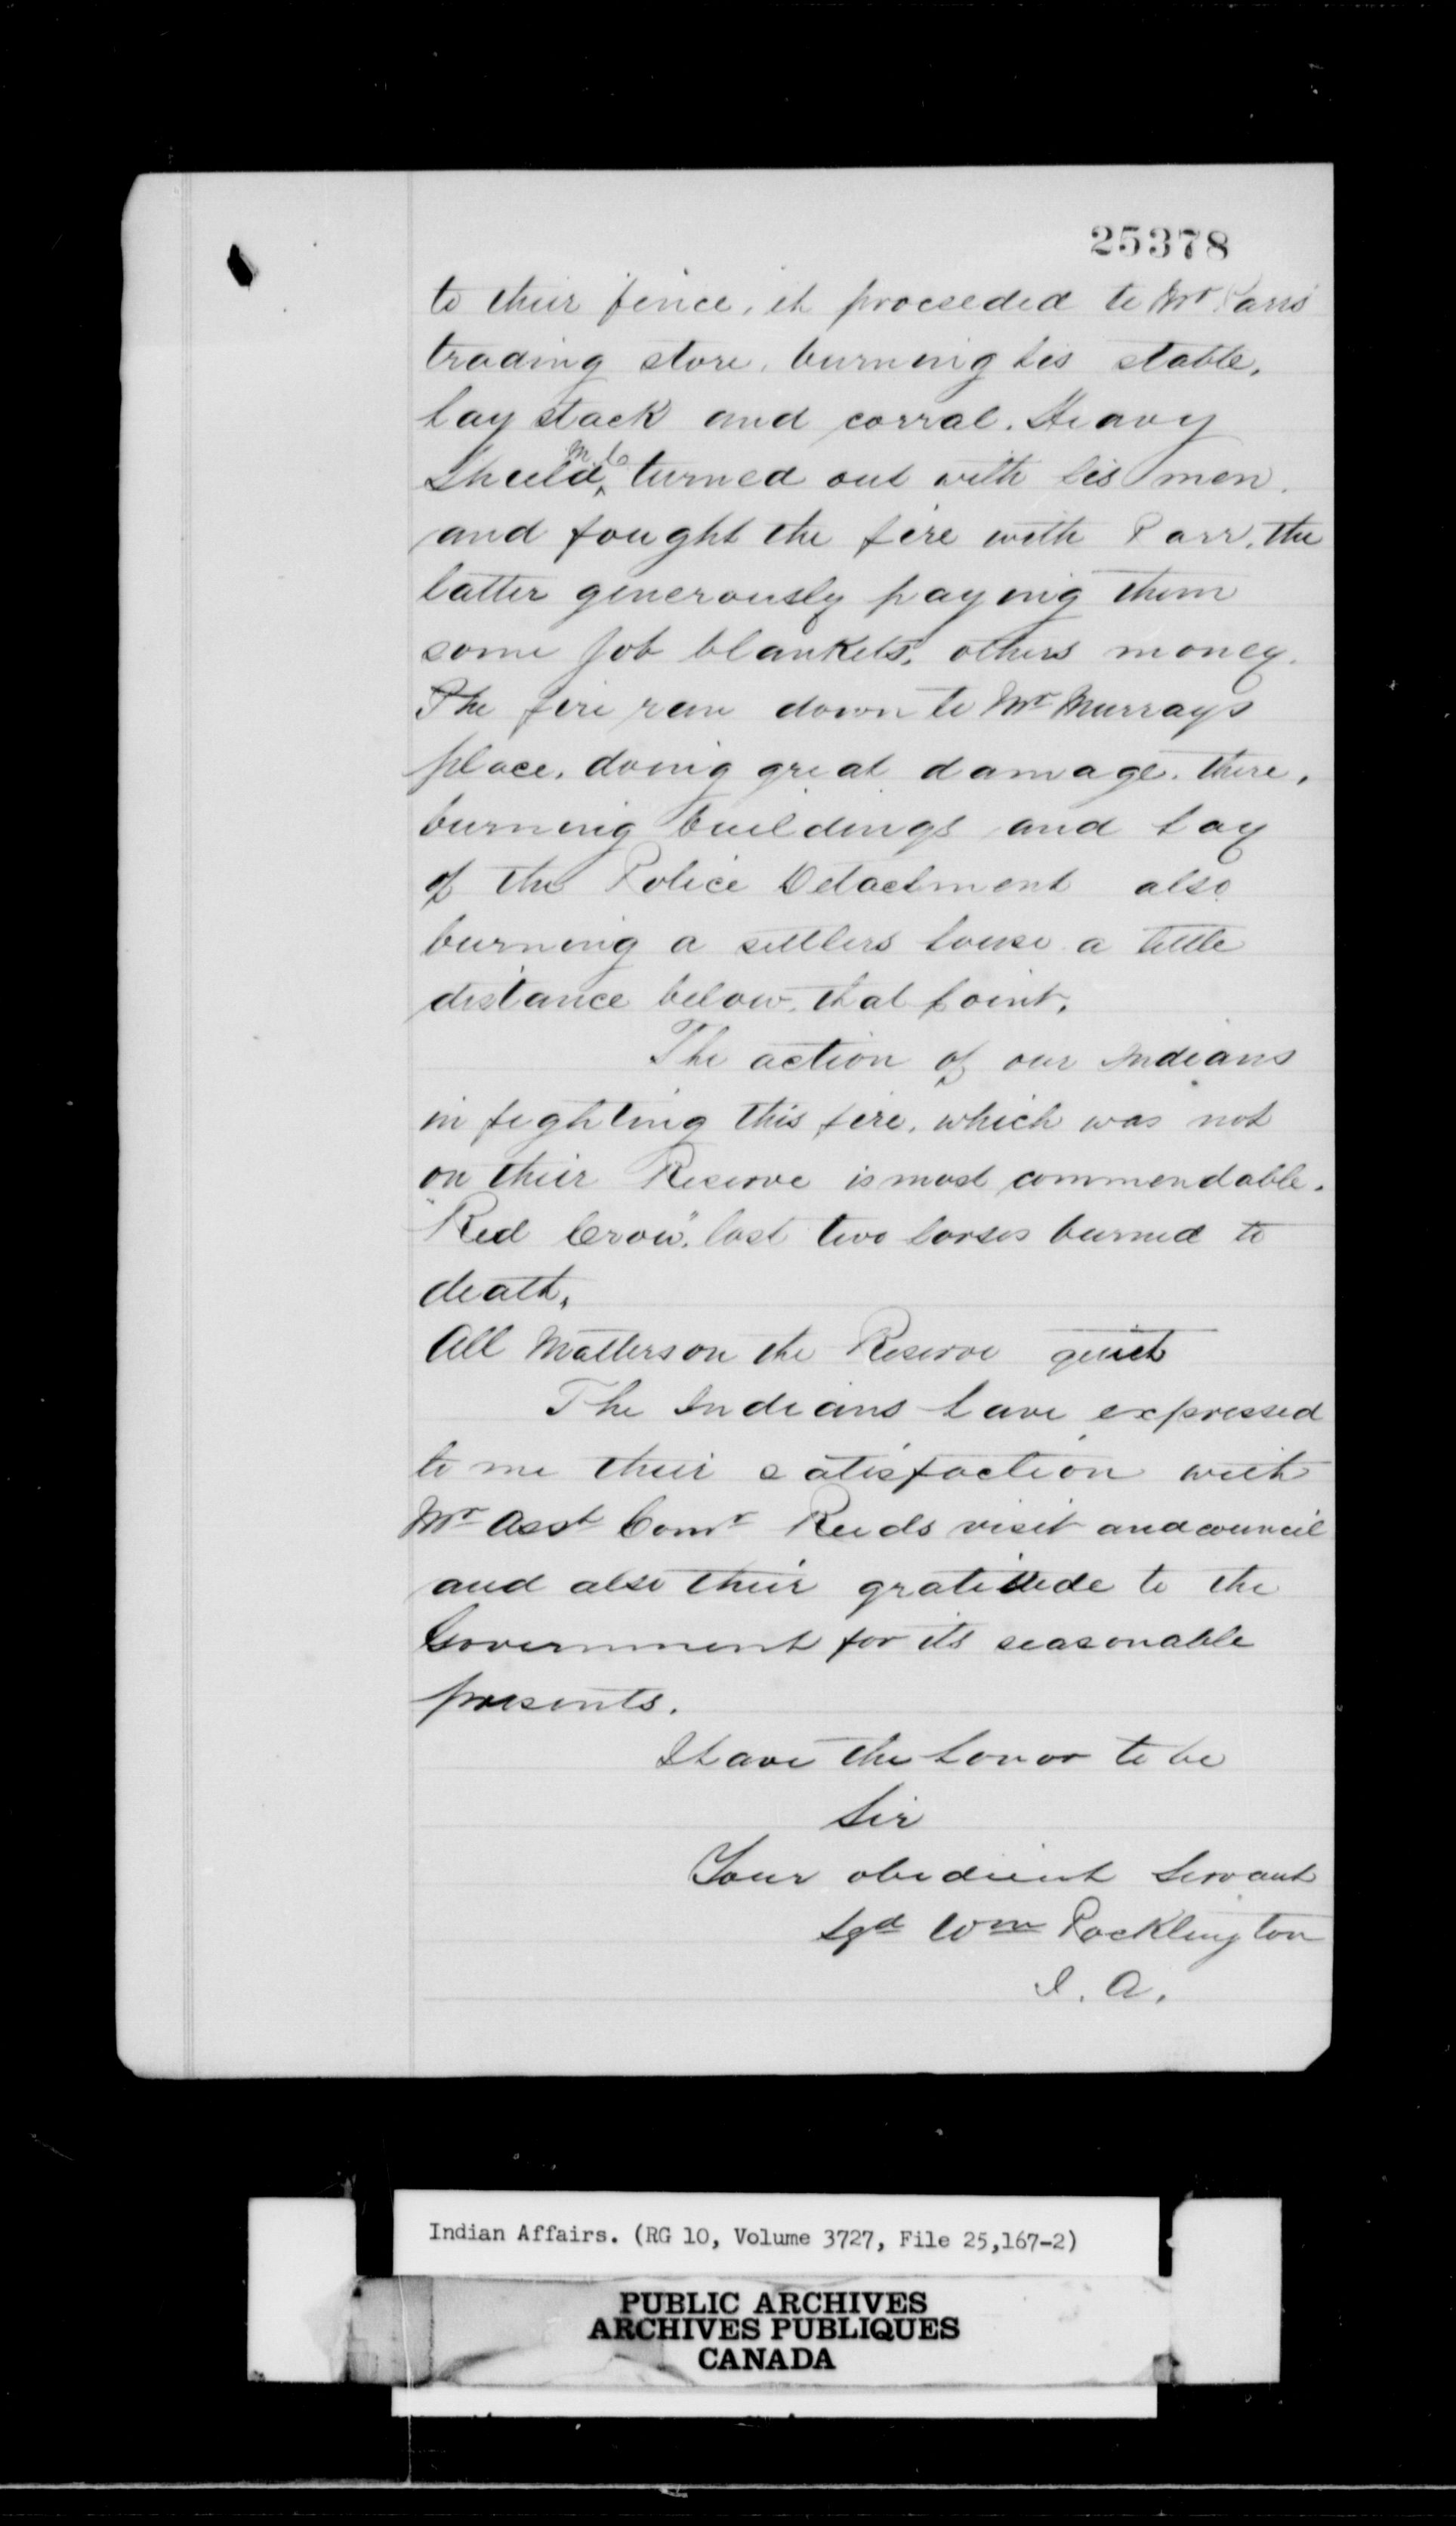 25378
to their fence, it proceeded to Mr Parrs
trading store, burning his stable,
hay stack and corral. Heavy
Shield, turned out with his men,
and fought the fire with Parr, the
latter generously paying them
some job blankets, others money.
The fire ran down to Mr Murrays
place, doing great damage there,
burning buildings and hay
of the Police Detachment also
burning a settlers house a little
distance below that point.
The action of our Indians
in fighting this fire, which was not
on their Reserve is most commendable.
"Red Crow" lost two horses burned to
death,
All Matters on the Reserve quiet
The Indians have expressed
to me their satisfaction with
Mr Asst Comr Reeds visit and council
and also their gratitude to the
Government for its seasonable
presents.
I have the honor to be
Sir
Your obedient Servant
Sgd Wm Pocklington
I. A.
Indian Affairs. (RG 10, Volume 3727, File 25,167-2)
PUBLIC ARCHIVES
ARCHIVES PUBLIQUES
CANADA